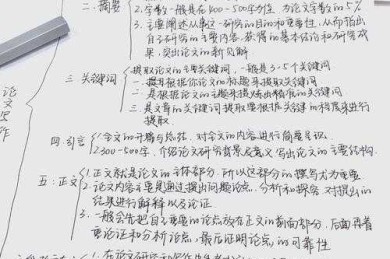 二. 摘要
2. 字数一般在300-500字列左, 为论文字数的5%
3. 主要阐述从事这一研究的目的和重要性, 从而指出
自己研究的主要内容, 获得的基本结论和研究成
果, 突出论文的新见解
三 关键词
提取论文的主要关键词, 一般是3-5个关键词
一是根据你论文的标题来提取关键词
二是根据论文的主题来提炼出精准的关键词
三是文章的关键词提取要根据关键词的程度来进行
提取
论文写作
四. 引言
1. 全文的开篇与总括, 对全文的内容进行简要
2. 300-500字, 介绍论文研究背景及意义 写出论文的主要结构.
五: 正文
1. 正文就是论文的主体部分, 所以这部分的撰写尤为重要
2. 论文内容主要是通过提出问题论点, 分析和探究 对提出的
结果进行解释以及论证
3. 一般会先把自己重要的论点放在正文的前面部分, 后面再着
重论证和分析论点, 最后证明论点的可靠性